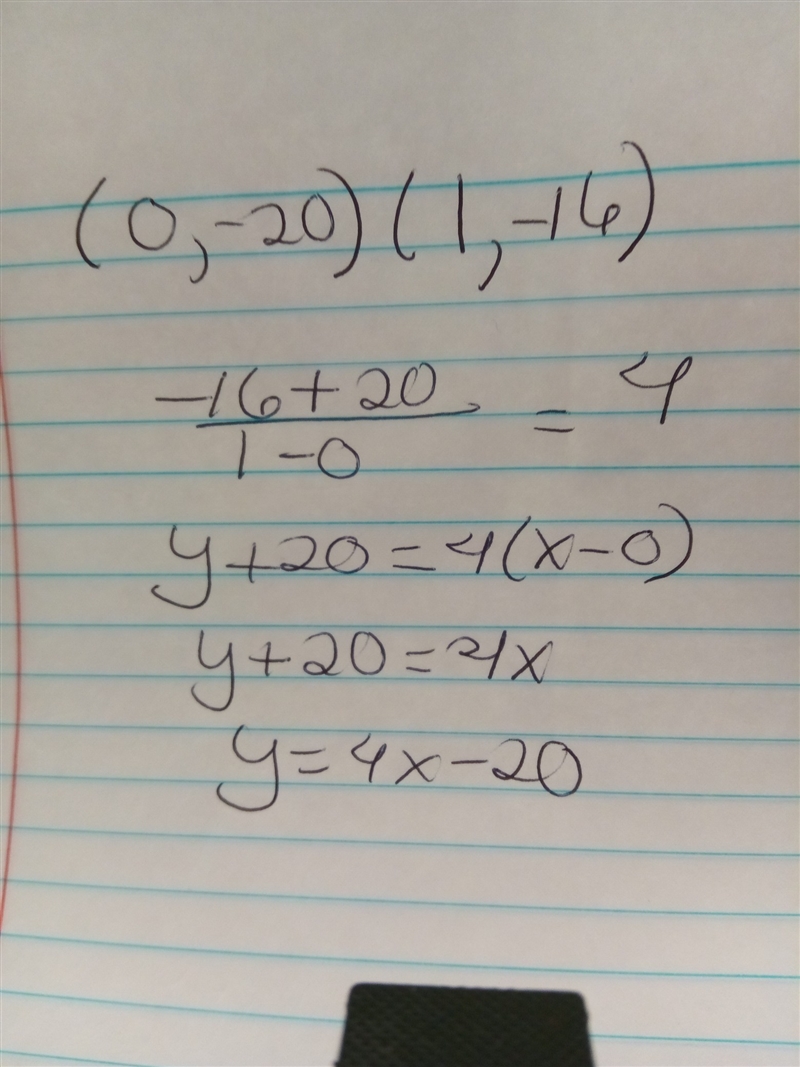 (0,-20)(1,-16)
-16+20
1-0
= 4
y+20=4(x-0)
y+20=4x
y=4x-20